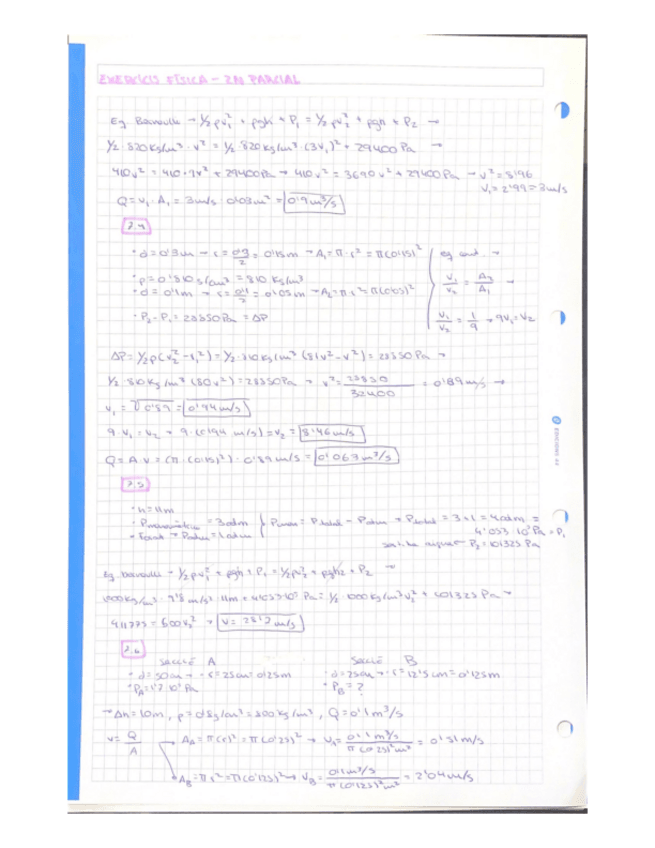 EXERCICIS FÍSICA - 2N PARCIAL
Eq Bernoulli → ½ρv₁² + ρgh + P₁ = ½ρv₂² + ρgh + P₂ →
½·820kg/m³·v² = ½·820kg/m³·(3v₁)² + 29400Pa →
410v² = 410·9v² + 29400Pa → 410v² = 3690v² + 29400Pa → v² = 8'96
V₁ = 2'99 = 3m/s
Q = v₁·A₁ = 3m/s · 0'03m² = 0'9m³/s
7.4
· d = 0'3m → r = 0'3/2 = 0'15m → A₁ = π·r² = π(0'15)²
eq cont. →
· ρ = 0'810g/cm³ = 810 kg/m³
· d = 0'1m → r = 0'1/2 = 0'05m → A₂ = π·r² = π(0'05)²
V₁/V₂ = A₂/A₁ →
· P₂-P₁ = 28850Pa = ΔP
V₁/V₂ = 1/9 → 9V₁ = V₂
ΔP = ½ρ(v₂² - v₁²) = ½·810kg/m³ (81v² - v²) = 28850Pa →
½·810kg/m³ (80v²) = 28850Pa → v² = 28850/32400 = 0'89m/s →
v₁ = √0'89 = 0'94m/s
9·v₁ = v₂ → 9·(0'94 m/s) = v₂ = 8'46m/s
Q = A·v = (π·(0'15)²)·0'89m/s = 0'063m³/s
7.5
· h = 11m
· Pmanomètrica = 3atm
Pman = Ptotal - Patm → Ptotal = 3+1 = 4atm =
4'053·10⁵Pa = P₁
Patm = 1atm
P₂ = 101325 Pa
Eq bernoulli → ½ρv₁² + ρgh + P₁ = ½ρv₂² + ρgh₂ + P₂ →
1000kg/m³ · 9'8m/s² · 11m + 4'053·10⁵ Pa = ½·1000kg/m³v₂² + 101325Pa →
v = 28'7 m/s
7.6
SECCIÓ A
SECCIÓ B
· d = 50cm → r = 25cm = 0'25m
· d = 25cm → r = 12'5cm = 0'125m
· PB = ?
→ Δh = 10m, ρ = 0'8g/cm³ = 800kg/m³, Q = 0'1m³/s
v = Q/A
AA = π(r)² = π(0'25)² → VA = 0'1m³/s / π(0'25)²m² = 0'51m/s
AB = πr² = π(0'125)² → VB = 0'1m³/s / π(0'125)²m² = 2'04m/s